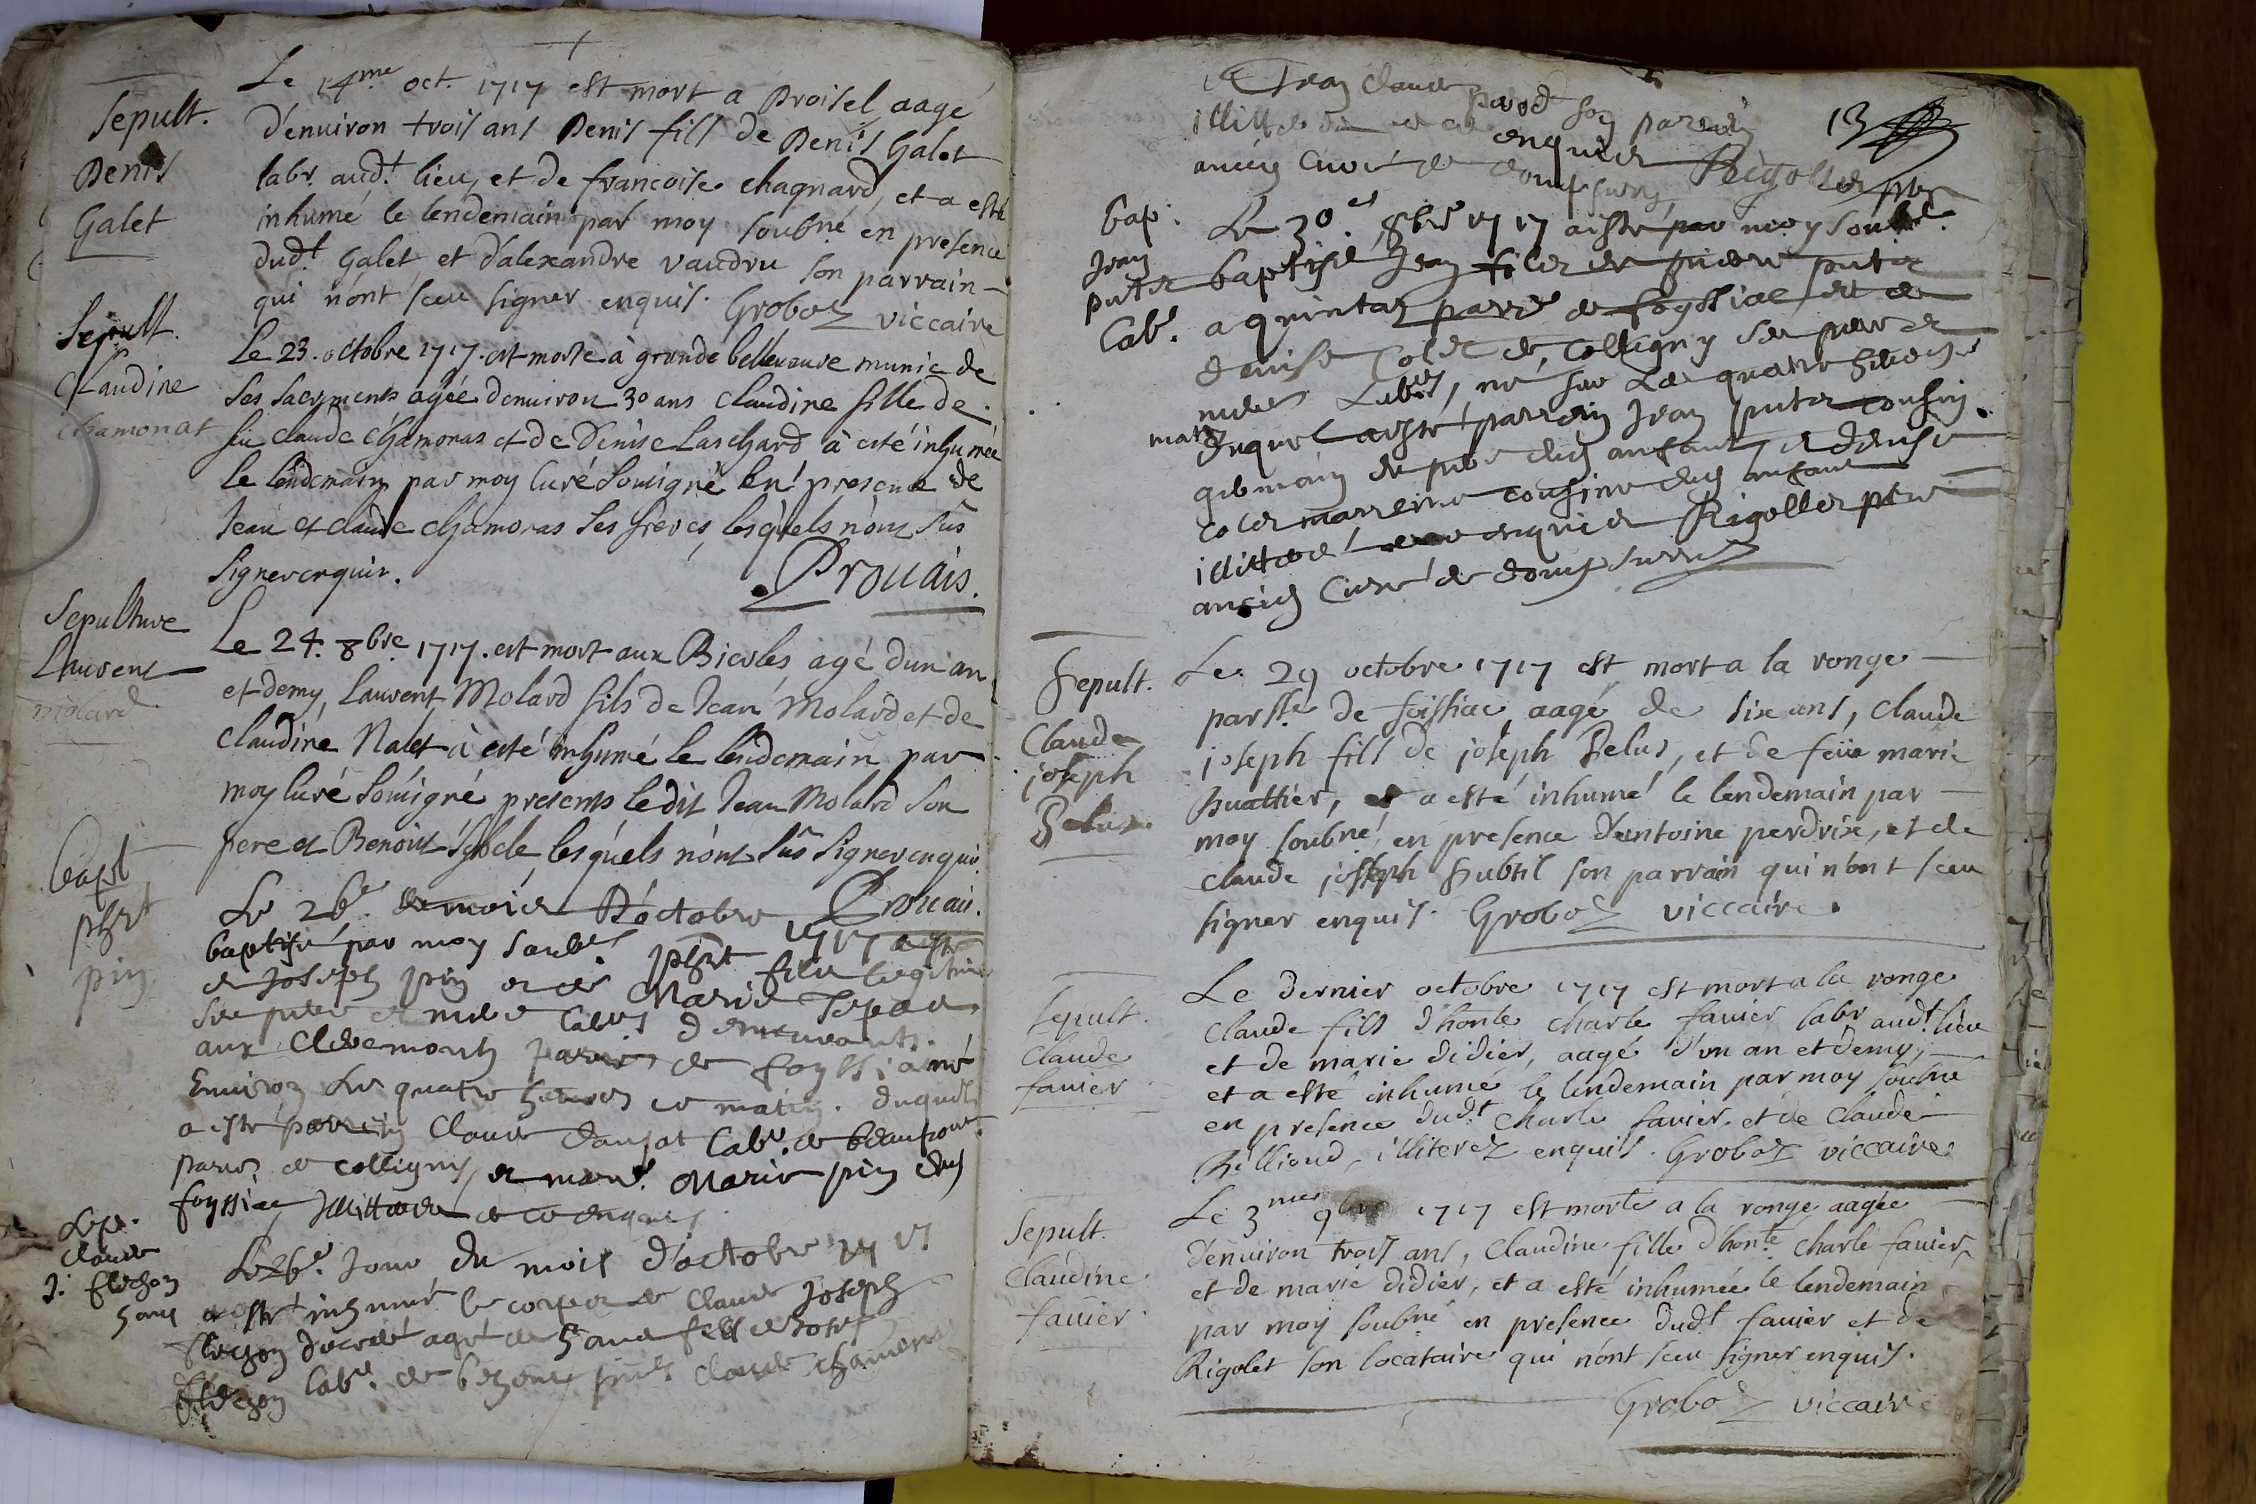 Sepult.
Denis
Galet
Le 14me oct. 1717 est mort a Broisel aagé
d'enuiron trois ans Denis fils de Denis Galet
labr. audt. lieu, et de francoise chagnard, et a esté
inhumé le lendemain par moy soubné en presence
dudt Galet et d'alexandre vaudru son parrain
qui n'ont sceu signer enquis. Groboz viccaire
Sepult.
Claudine
Chamonat
Le 23. octobre 1717. est morte à grande belleueure munie de
ses sacrments agée denuiron 30 ans Claudine fille de
feu Claude chamonas et de Denise Laschard à esté inhumée
le lendemain par moy Curé Souigné en presence de
Jean et claude chamonas ses freres, lesquels n'ont sus
signer enquis. Prouais.
Sepulture
Laurent
Molard
Le 24. 8bre. 1717. est mort aux Bicoles, agé d'un an
et demy, Laurent Molard fils de Jean Molard et de
Claudine Nalet à esté inhumé le lendemain par
moy Curé Souigné presents ledit Jean Molard son
pere et Benoist, lesquels n'ont sus signer enquis
Prouais.
bapt
phrt
pin
Le 26e. de mois d'octobre 1717 a esté
baptisé par moy soubs. phrt fils legitime
de Joseph pin et de Marie
ses pere et mere labrs demeurants
aux Cleremonts parois de foyssia né
Enuiron les quatre heures ce matin. duquel
a esté parrein Claude Labr. de beaupont
parois de Colligny, et mare. Marie pin dud
foyssia illitteres de ce enquis
Sepu.
Claude
J. flechon
5 ans
Le 26e. Jour du mois d'octobre 1717
a esté inhumé le corps de Claude Joseph
flechon decedé agé de 5 ans fils de Joseph
flechon labr. de Claude
Jean Claude son parrein
illitteres de ce enquis Rigollet ptre
ancien Curé de domsure
13
bap.
Jean
puter
Labr.
Le 30e. 8bre 1717 a esté par moy soubs.
baptisé Jean fils de pierre puter
a quintas parois de foyssiac et de
denise Colet de Colligny ses pere et
mere Labrs, né sur les quatre heures
matin duquel a esté parrein Jean puter cousin
germain du pere dud enfant, et denise
colet marreine cousine dud enfant
illitteres de ce enquis Rigollet ptre
ancien Curé de domsure
Sepult.
Claude
joseph
Belus
Le 29 octobre 1717 est mort a la ronge
parsse de foissiac aagé de six ans, Claude
joseph fils de joseph Belus, et de feüe marie
Buathier, et a esté inhumé le lendemain par
moy soubné, en presence d'antoine perdrix, et de
claude joseph Subtil son parrain qui n'ont sceu
signer enquis. Groboz viccaire.
Sepult.
Claude
fauier
Le dernier octobre 1717 est mort a la ronge
Claude fils d'honte charle fauier labr audt lieu
et de marie didier, aagé d'vn an et demy,
et a esté inhumé le lendemain par moy soubné
en presence dudt Charle fauier et de Claude
Billioud, illiterez enquis. Groboz viccaire
Sepult.
Claudine
fauier
Le 3me 9bre 1717 est morte a la ronge aagée
d'enuiron trois ans, Claudine fille d'honte. Charle fauier
et de marie didier, et a esté inhumée le lendemain
par moy soubné en presence dudt fauier et de
Rigolet son locataire qui n'ont sceu signer enquis.
Groboz viccaire